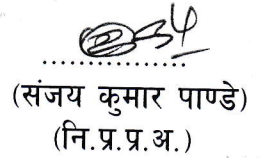 ....................
(संजय कुमार पाण्डे)
(नि.प्र.प्र.अ.)